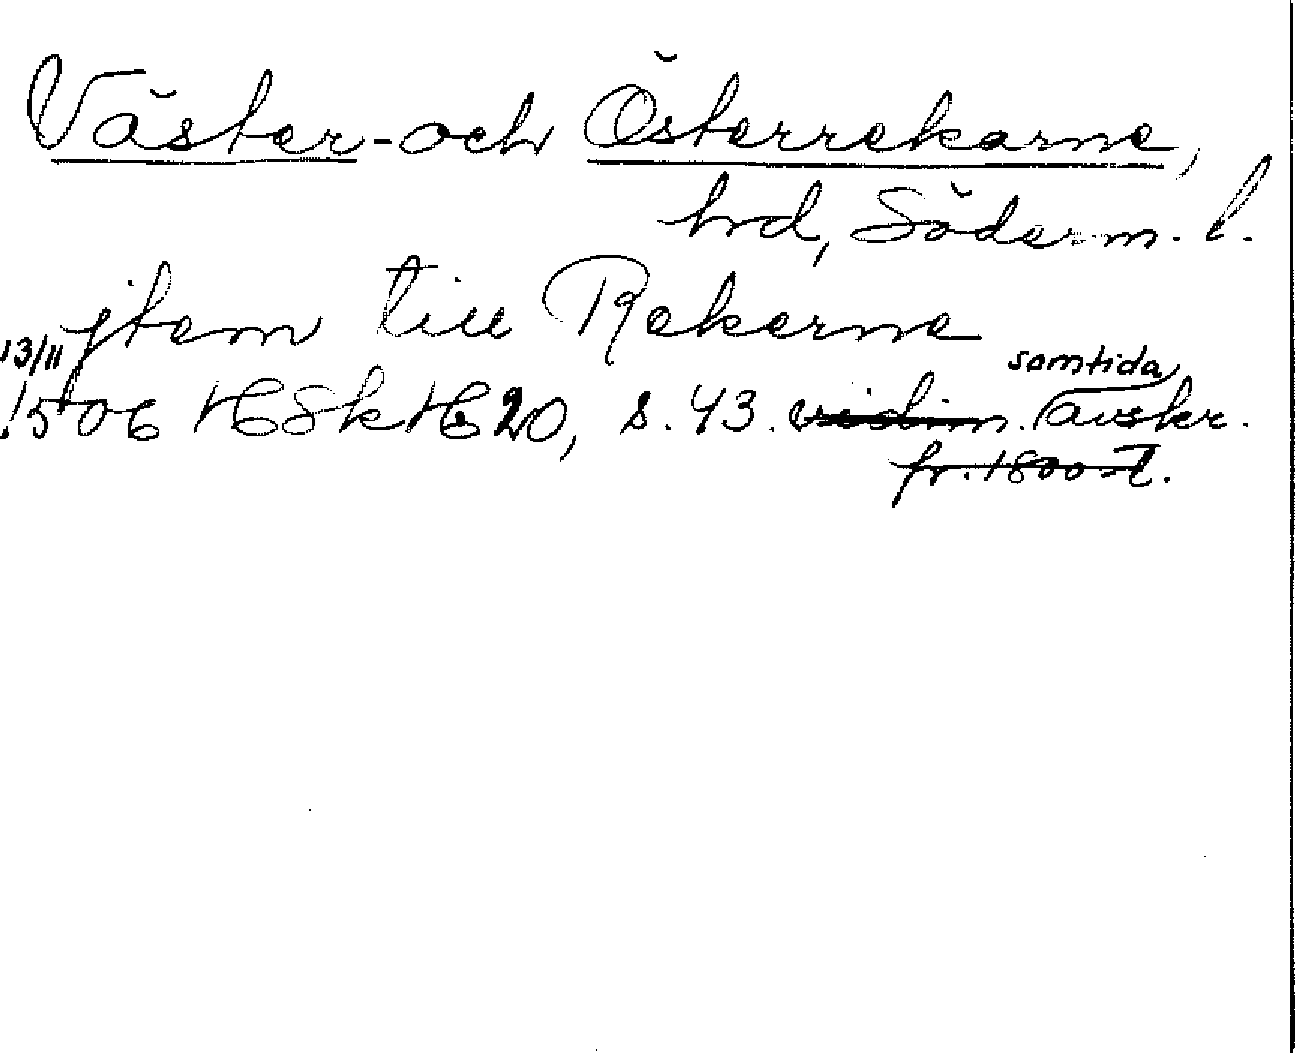 Väster- och Österrekarne,
hrd, Söderm. l.
jtem till Rekerne
13/11 samtida
1506 HSkH 20, s. 43. vidim. avskr.
fr. 1800-t.